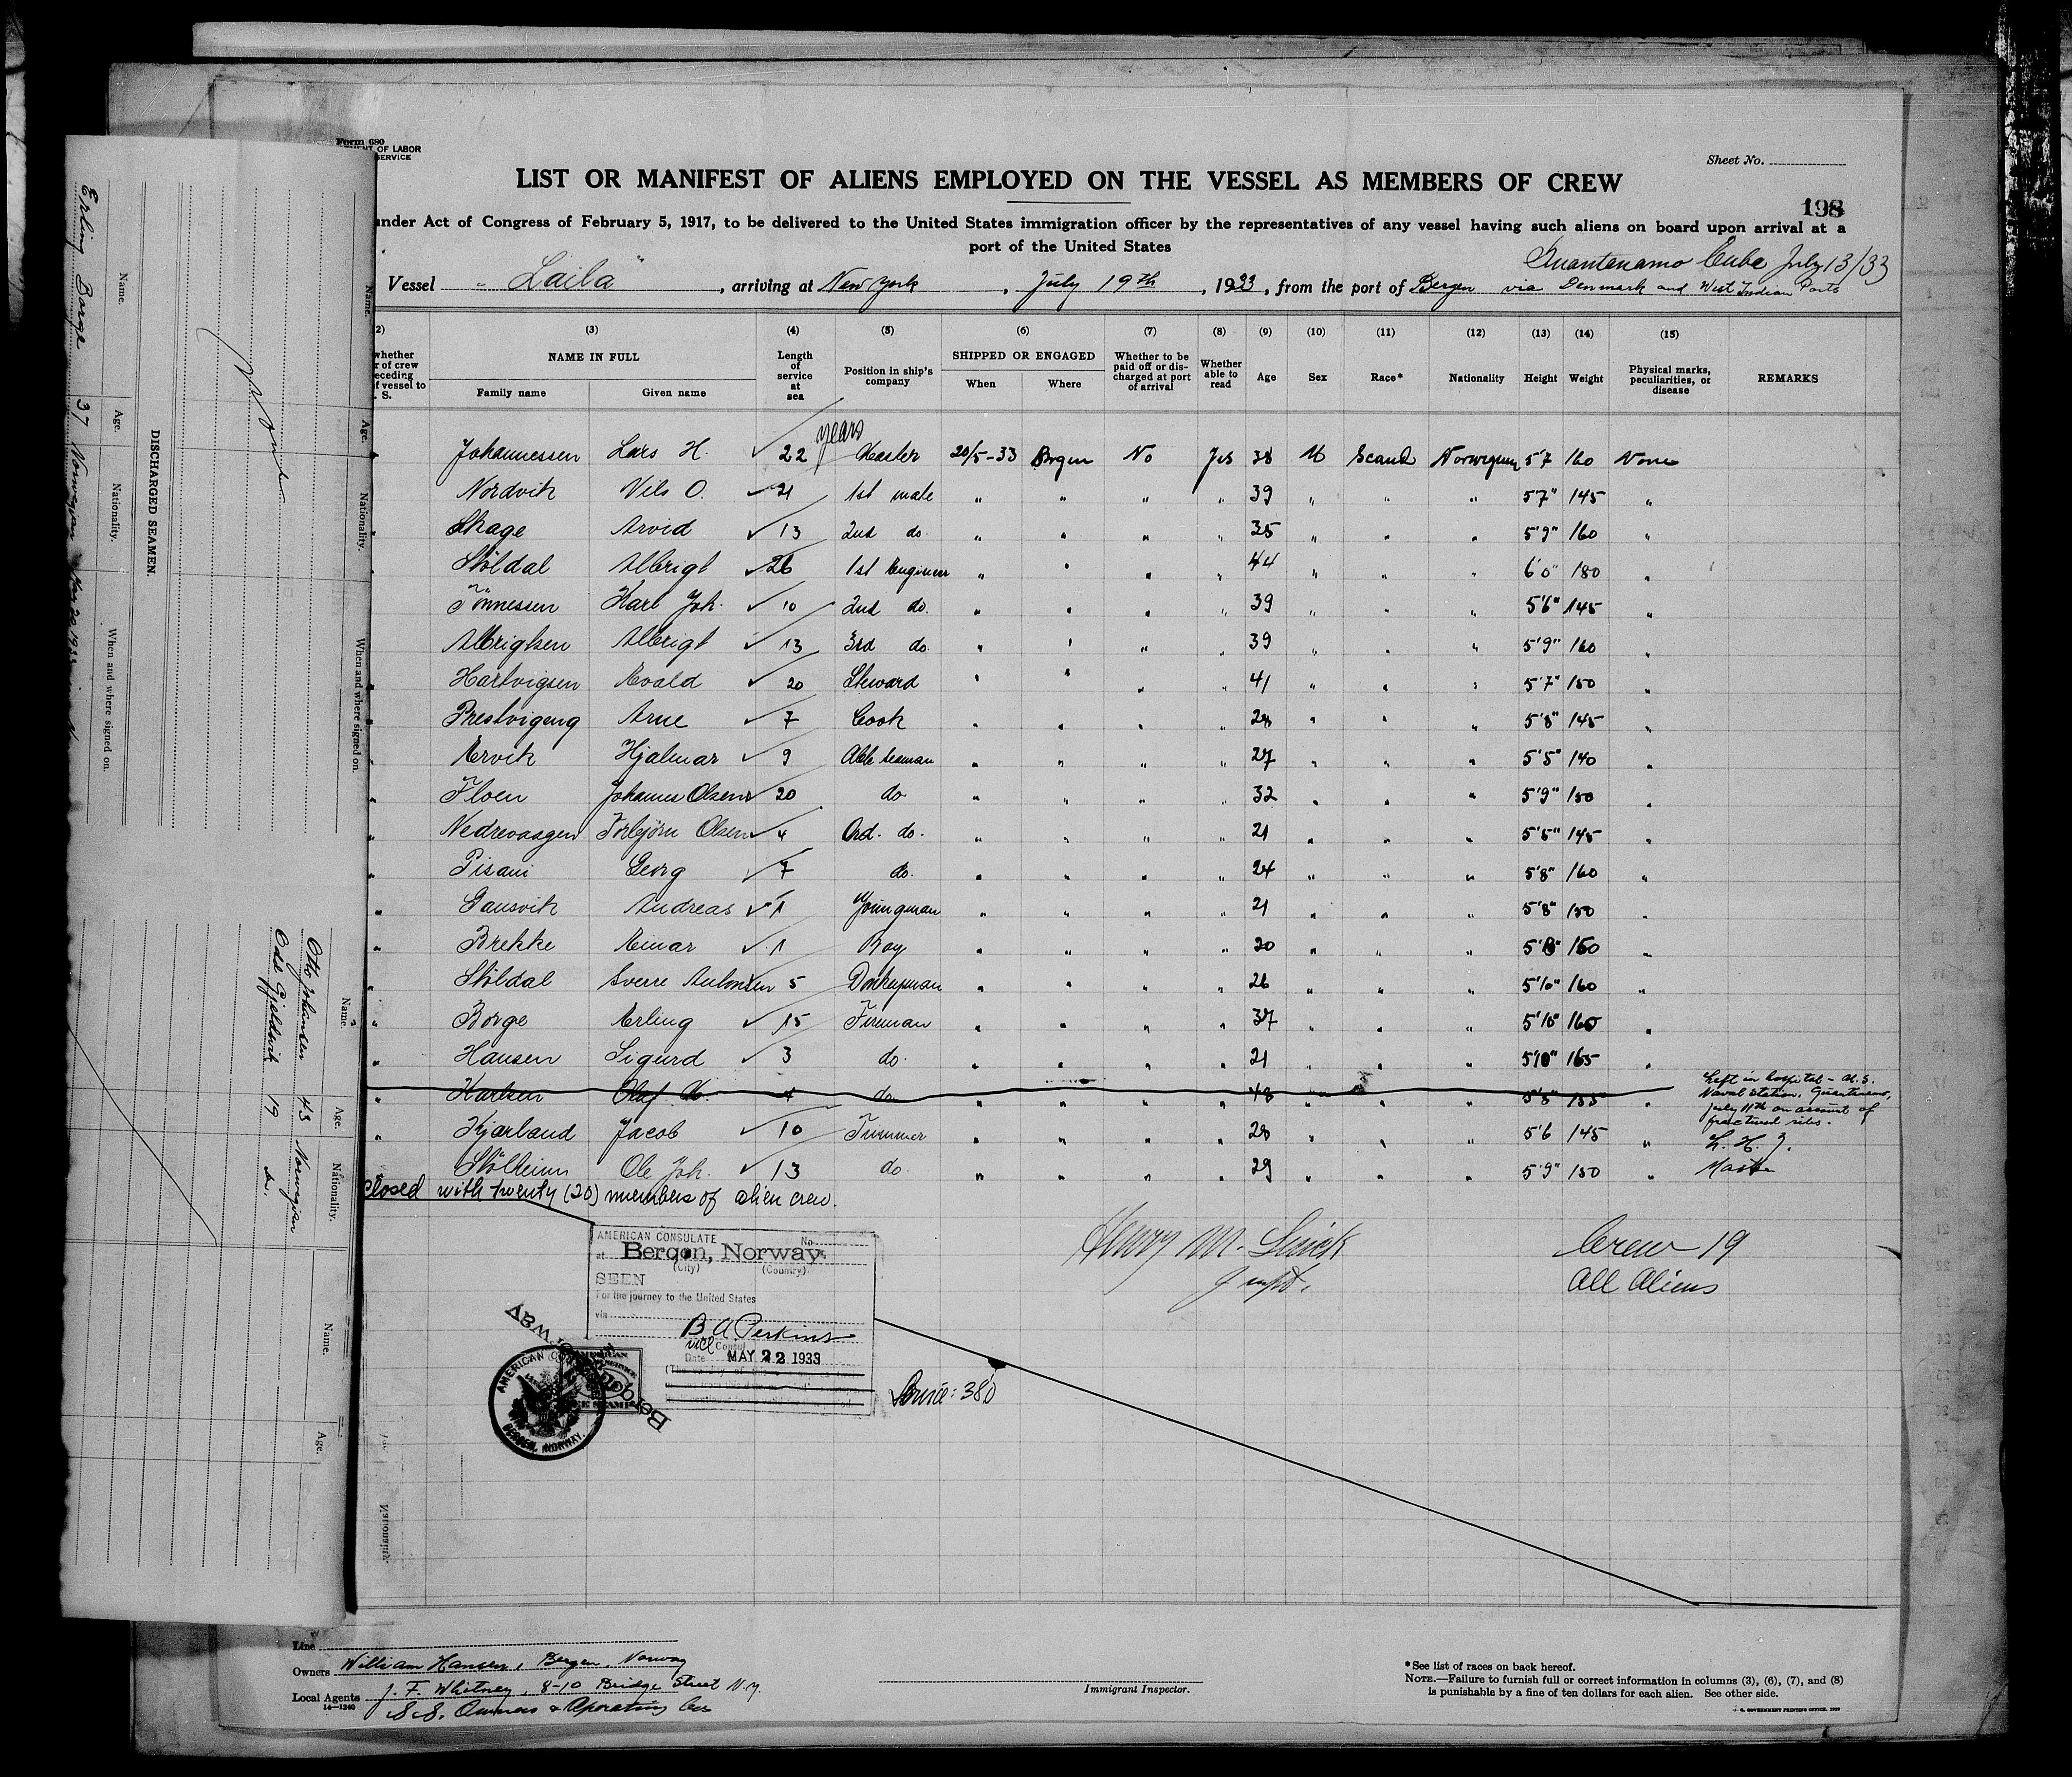 Form 680
MENT OF LABOR
SERVICE
Sheet No.
LIST OR MANIFEST OF ALIENS EMPLOYED ON THE VESSEL AS MEMBERS OF CREW
198
under Act of Congress of February 5, 1917, to be delivered to the United States immigration officer by the representatives of any vessel having such aliens on board upon arrival at a
port of the United States
Guantanamo Cuba July 13/33
Vessel "Laila", arriving at New York, July 19th, 1933, from the port of Bergen via Denmark and West Indian Ports
2) (3) (4) (5) (6) (7) (8) (9) (10) (11) (12) (13) (14) (15)
whether
r of crew
eceding
f vessel to
. S.
NAME IN FULL
Family name Given name
Length of service at sea
Position in ship's company
SHIPPED OR ENGAGED
When Where
Whether to be paid off or discharged at port of arrival
Whether able to read
Age Sex Race* Nationality Height Weight
Physical marks, peculiarities, or disease
REMARKS
years
Johannessen Lars H. 22 Master 20/5-33 Bergen No Yes 38 M Scand Norwegian 5'7 160 None
Nordvik Nils O. 21 1st mate " " " " 39 " " " 5'7" 145 "
Skage Arvid 13 2nd do. " " " " 35 " " " 5'9" 160 "
Støldal Albrigt 26 1st Engineer " " " " 44 " " " 6'0" 180 "
Tönnessen Karl Joh. 10 2nd do. " " " " 39 " " " 5'6" 145 "
Albrigtsen Albrigt 13 3rd do. " " " " 39 " " " 5'9" 160 "
Hartvigsen Evald 20 Steward " " " " 41 " " " 5'7" 150 "
Arne 7 Cook " " " " 28 " " " 5'8" 145 "
Ervik Hjalmar 9 Able seaman " " " " 27 " " " 5'5" 140 "
Floen Johannes Olsen 20 do " " " " 32 " " " 5'9" 150 "
Nedrevaagen Torbjørn Olsen 4 Ord. do. " " " " 21 " " " 5'5" 145 "
Pisani Georg 7 do. " " " " 24 " " " 5'8" 160 "
Gausvik Andreas 1 Youngman " " " " 21 " " " 5'8" 150 "
Brekke Einar 1 Boy " " " " 20 " " " 5'8" 150 "
Støldal Sverre Antonsen 5 Donkeyman " " " " 26 " " " 5'10" 160 "
Borge Erling 15 Fireman " " " " 37 " " " 5'10" 165 "
Hansen Sigurd 3 do. " " " " 21 " " " 5'10" 165 "
Karlsen Olaf 4 do " " " " 48 " " " 5'8" 155 "
Left in hospital - U.S.
Naval Station, Guantanamo,
July 11th on account of
fractured ribs.
L. H. J.
Master
Kjarland Jacob 10 Trimmer " " " " 28 " " " 5'6 145 "
Stølheim Ole Joh. 13 do. " " " " 29 " " " 5'9" 150 "
Closed with twenty (20) members of alien crew.
AMERICAN CONSULATE No.
at Bergen, Norway.
(City) (Country)
SEEN
For the journey to the United States
via
B A Perkins
vice Consul
Date MAY 22 1933
Bergen, Norway
AMERICAN CONSULATE
BERGEN, NORWAY.
Service: 380
Henry M.
Inspt.
Crew 19
All Aliens
Line
Owners William Hansen, Bergen, Norway
Local Agents J. F. Whitney, 8-10 Bridge Street N.Y.
14-1240
S.S. Owners & Operating Co's
Immigrant Inspector.
*See list of races on back hereof.
NOTE.—Failure to furnish full or correct information in columns (3), (6), (7), and (8)
is punishable by a fine of ten dollars for each alien. See other side.
U. S. GOVERNMENT PRINTING OFFICE
DISCHARGED SEAMEN.
Name. Age. Nationality. When and where signed on.
Erling Borge 37 Norwegian May 20 1933
Name. Age. Nationality. When and where signed on.
None
Name. Age. Nationality.
Otto Johansen 43 Norwegian
Odd Gjeldvik 19 do.
Name. Age.
Nationality.